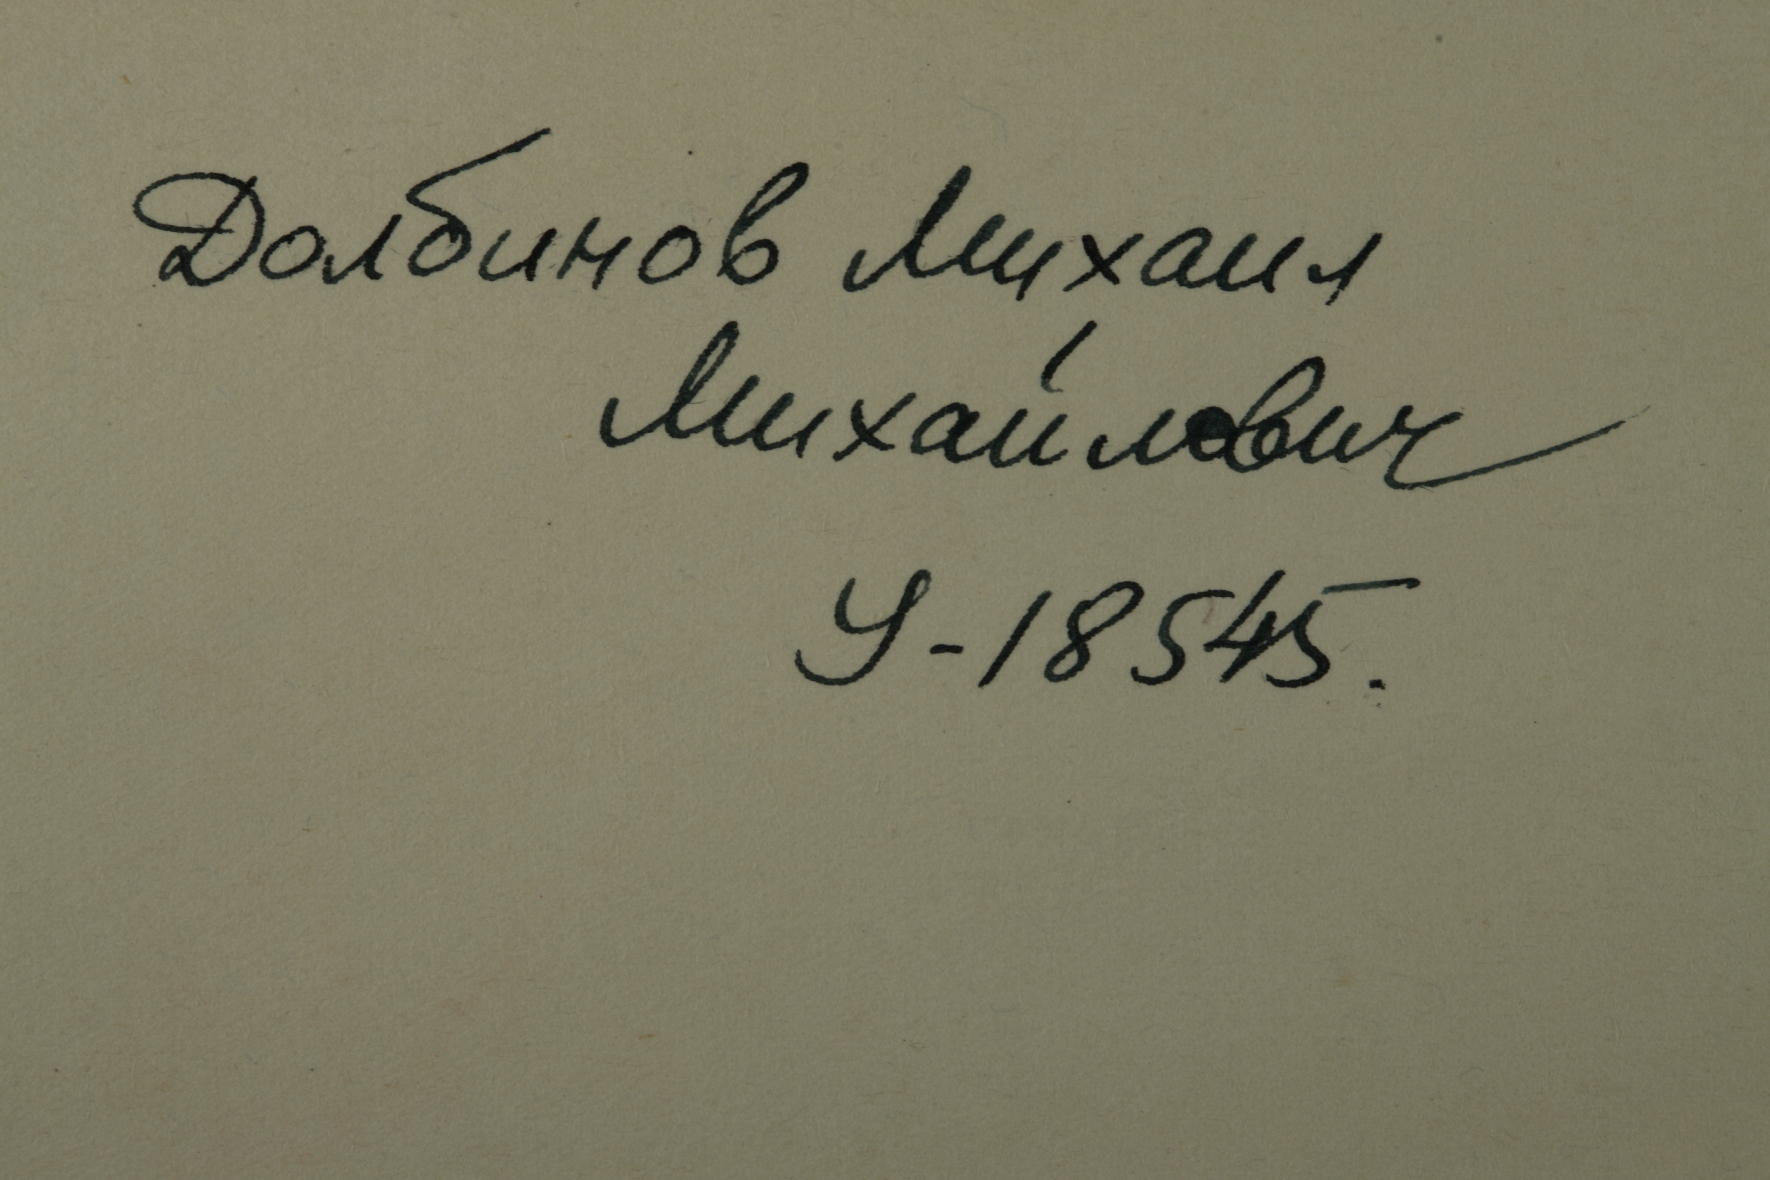 Долбинов Михаил
Михайлович
У-18545.